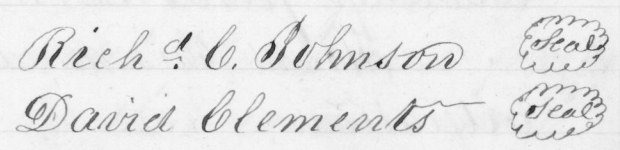 Richd. C. Johnson Seal
David Clements Seal